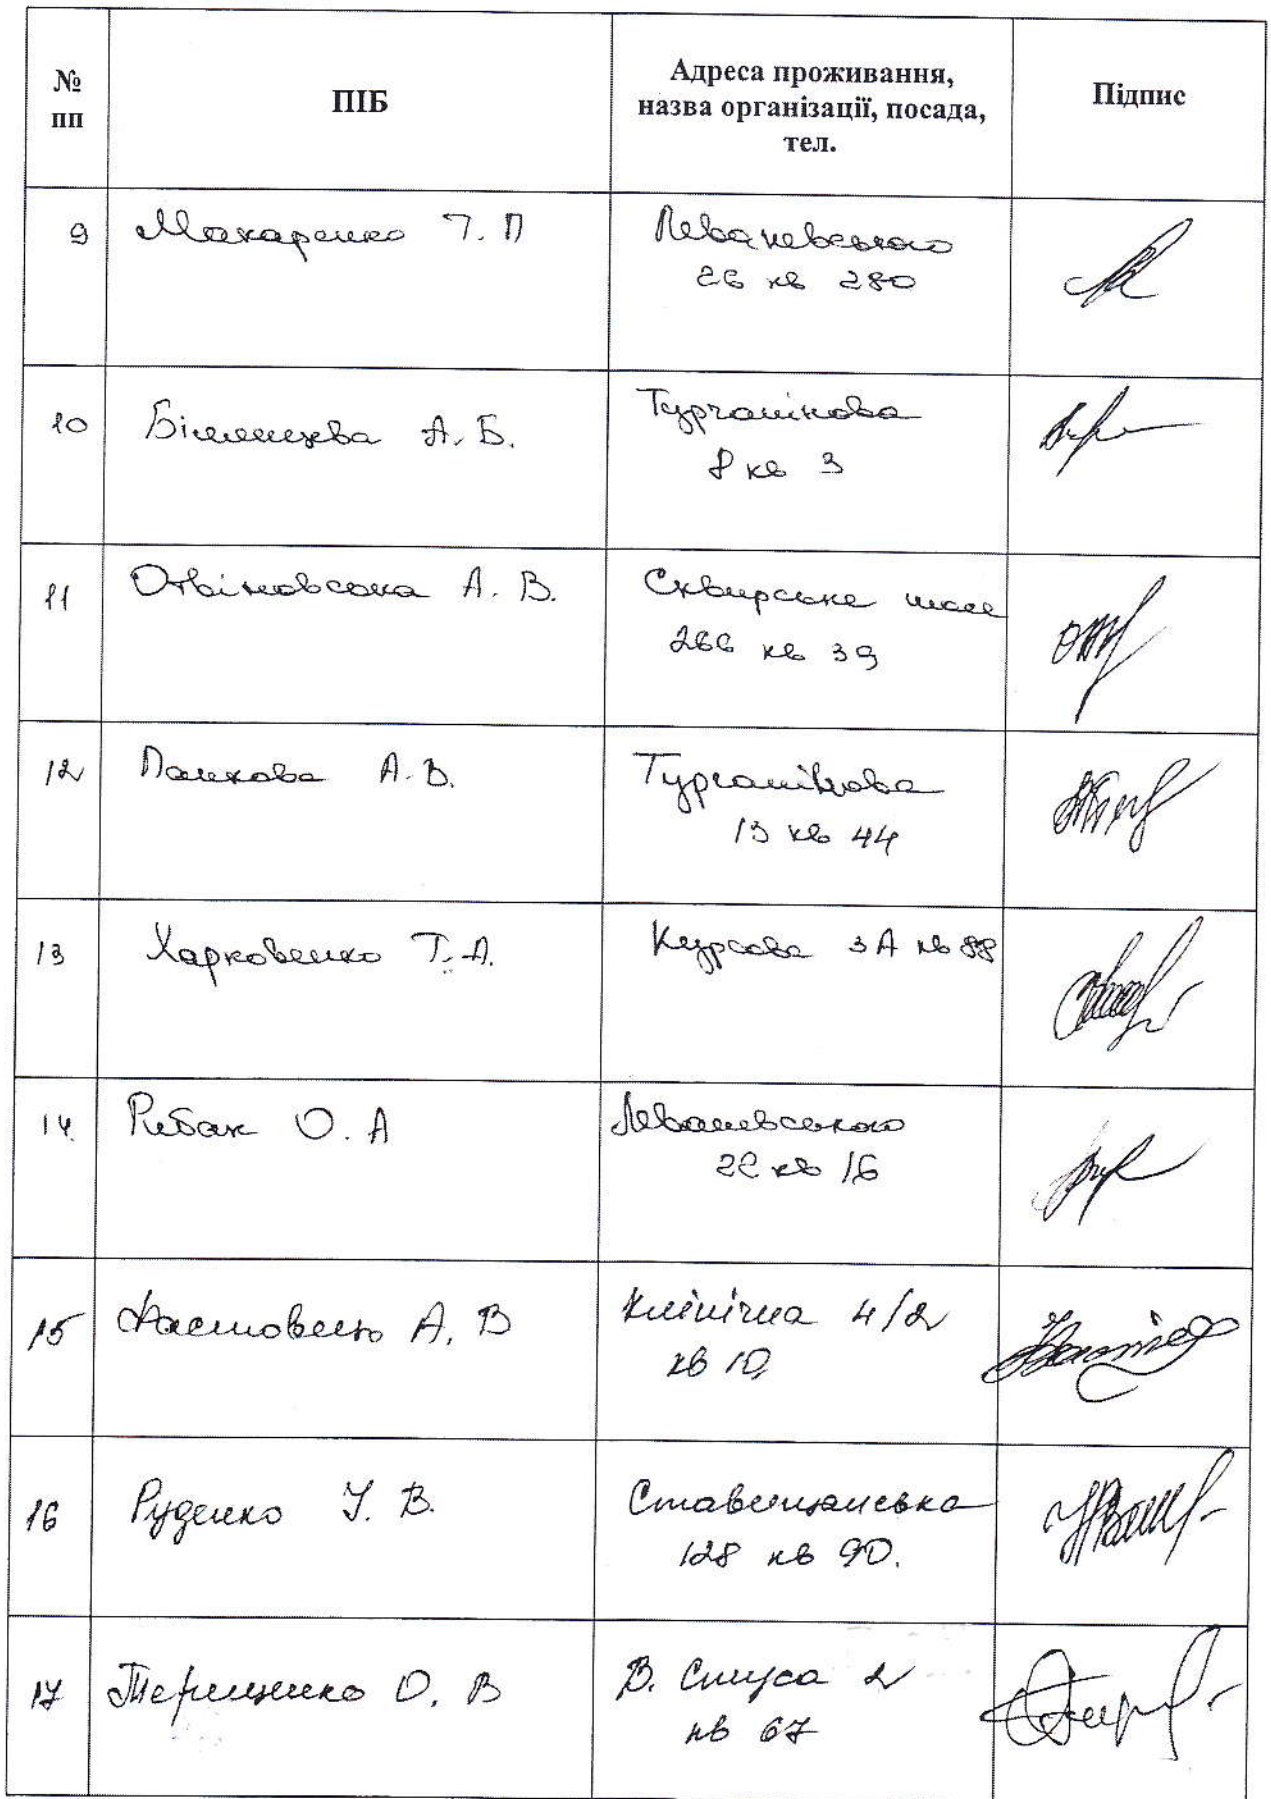 № пп
ПІБ
Адреса проживання,
назва організації, посада,
тел.
Підпис
9 Макаренко Т. П Леваневського
26 кв 280
10 А. Б. Турчанінова
8 кв 3
11 А. В. Сквирське шосе
266 кв 39
12 Панкова А. В. Турчанінова
13 кв 44
13 Харковенко Т. А. Курсова 3А кв 88
14 Рибак О. А Леваневського
22 кв 16
15 Настовець А. В Клінічна 4/2
кв 10
16 Руденко У. В. Ставищанська
128 кв 90.
17 Терещенко О. В В. Стуса 2
кв 67